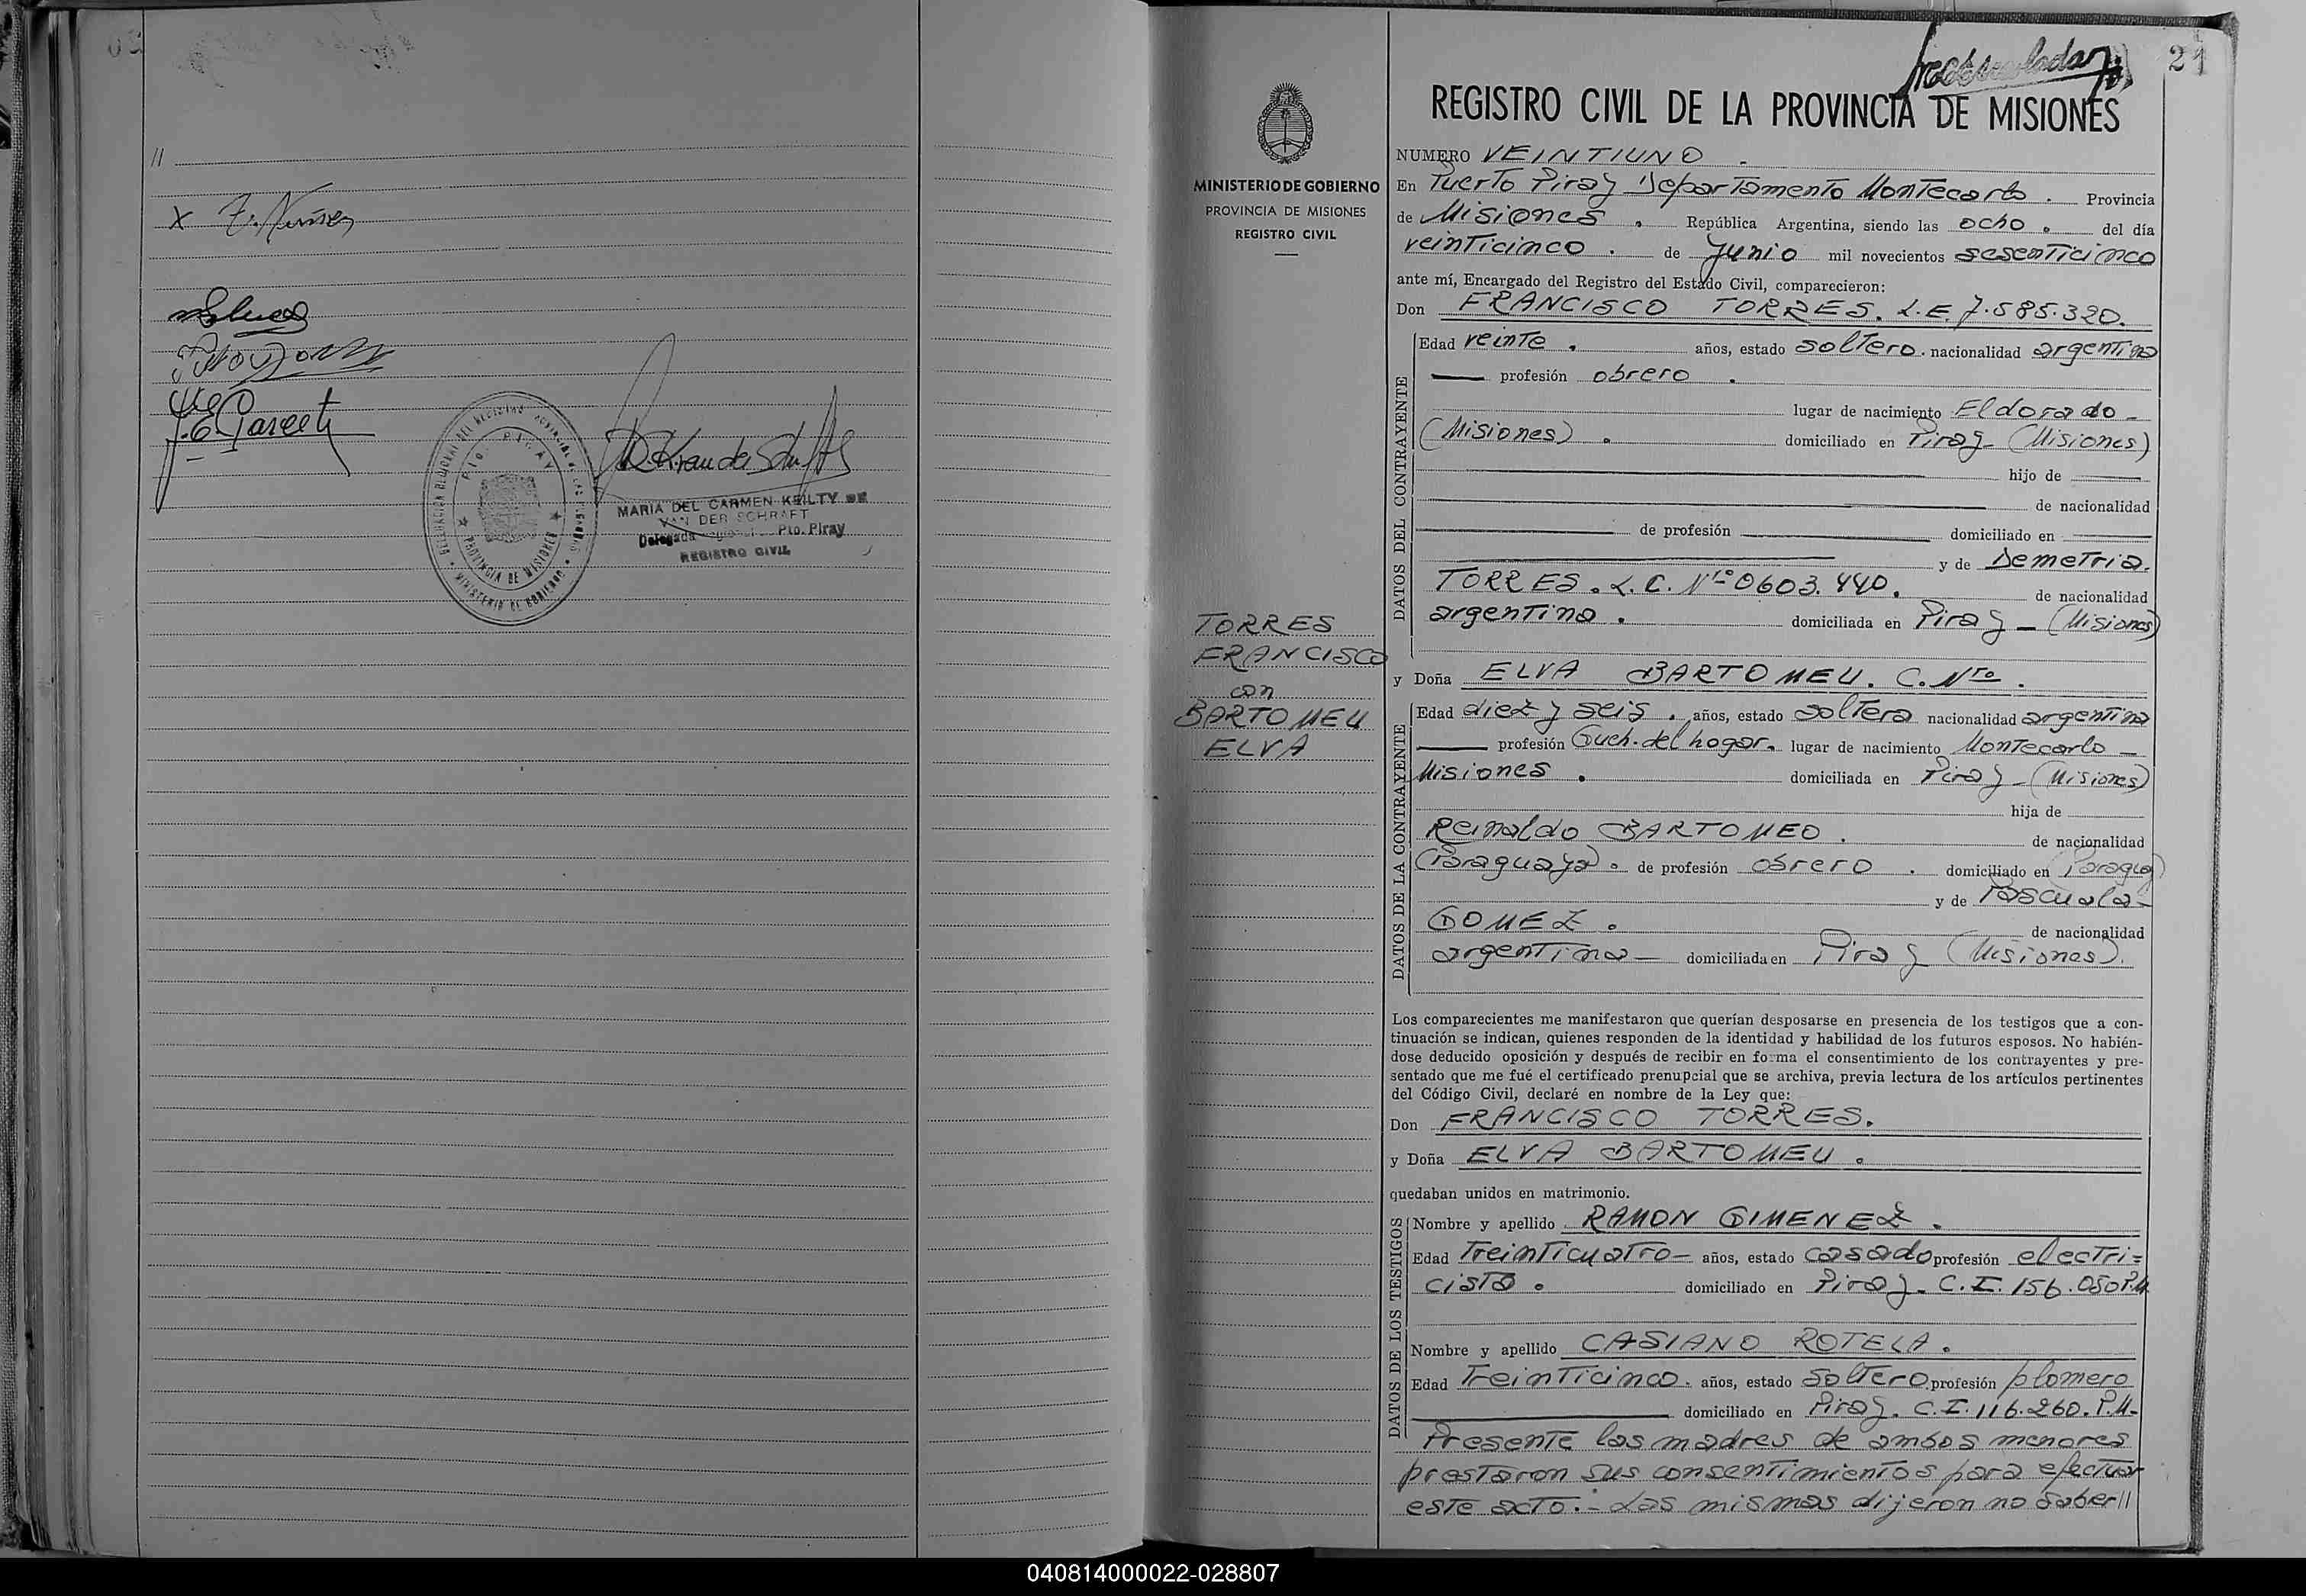 //
x F. Nuñez
J. E. Pareet
MARIA DEL CARMEN KEILTY DE
VAN DER SCHRAFT
Delegada Pto. Piray
REGISTRO CIVIL
Pto. PIRAY
PROVINCIA DE MISIONES
MINISTERIO DE GOBIERNO
21
REGISTRO CIVIL DE LA PROVINCIA DE MISIONES
MINISTERIO DE GOBIERNO
PROVINCIA DE MISIONES
REGISTRO CIVIL
TORRES
FRANCISCO
con
BARTOMEU
ELVA
NUMERO VEINTIUNO.
En Puerto Piray Departamento Montecarlo. Provincia
de Misiones. República Argentina, siendo las ocho. del día
veinticinco. de Junio mil novecientos sesenticinco
ante mí, Encargado del Registro del Estado Civil, comparecieron:
Don FRANCISCO TORRES. L.E. 7.585.320.
DATOS DEL CONTRAYENTE
Edad veinte. años, estado soltero. nacionalidad argentina
— profesión obrero.
lugar de nacimiento Eldorado -
(Misiones). domiciliado en Piray - (Misiones)
hijo de
de nacionalidad
de profesión domiciliado en
y de Demetria.
TORRES. L.C. Nro 0603.440. de nacionalidad
argentina. domiciliada en Piray - (Misiones)
y Doña ELVA BARTOMEU. C. Nro.
DATOS DE LA CONTRAYENTE
Edad diez y seis. años, estado soltera nacionalidad argentina
— profesión Queh. del hogar. lugar de nacimiento Montecarlo -
Misiones. domiciliada en Piray - (Misiones)
hija de
Reinaldo BARTOMEO. de nacionalidad
(Paraguaya). de profesión obrero. domiciliado en (Paraguay)
y de Pascuala -
GOMEZ. de nacionalidad
argentina - domiciliada en Piray (Misiones).
Los comparecientes me manifestaron que querían desposarse en presencia de los testigos que a con-
tinuación se indican, quienes responden de la identidad y habilidad de los futuros esposos. No habién-
dose deducido oposición y después de recibir en forma el consentimiento de los contrayentes y pre-
sentado que me fué el certificado prenupcial que se archiva, previa lectura de los artículos pertinentes
del Código Civil, declaré en nombre de la Ley que:
Don FRANCISCO TORRES.
y Doña ELVA BARTOMEU.
quedaban unidos en matrimonio.
DATOS DE LOS TESTIGOS
Nombre y apellido RAMON GIMENEZ.
Edad Treinticuatro - años, estado casado profesión electri=
cista. domiciliado en Piray. C.I. 156.050 P.M.
Nombre y apellido CASIANO ROTELA.
Edad Treinticinco. años, estado soltero. profesión plomero
domiciliado en Piray. C.I. 116.260. P.M.-
Presente las madres de ambos menores
prestaron sus consentimientos para efectuar
este acto.- Las mismas dijeron no saber//
040814000022-028807